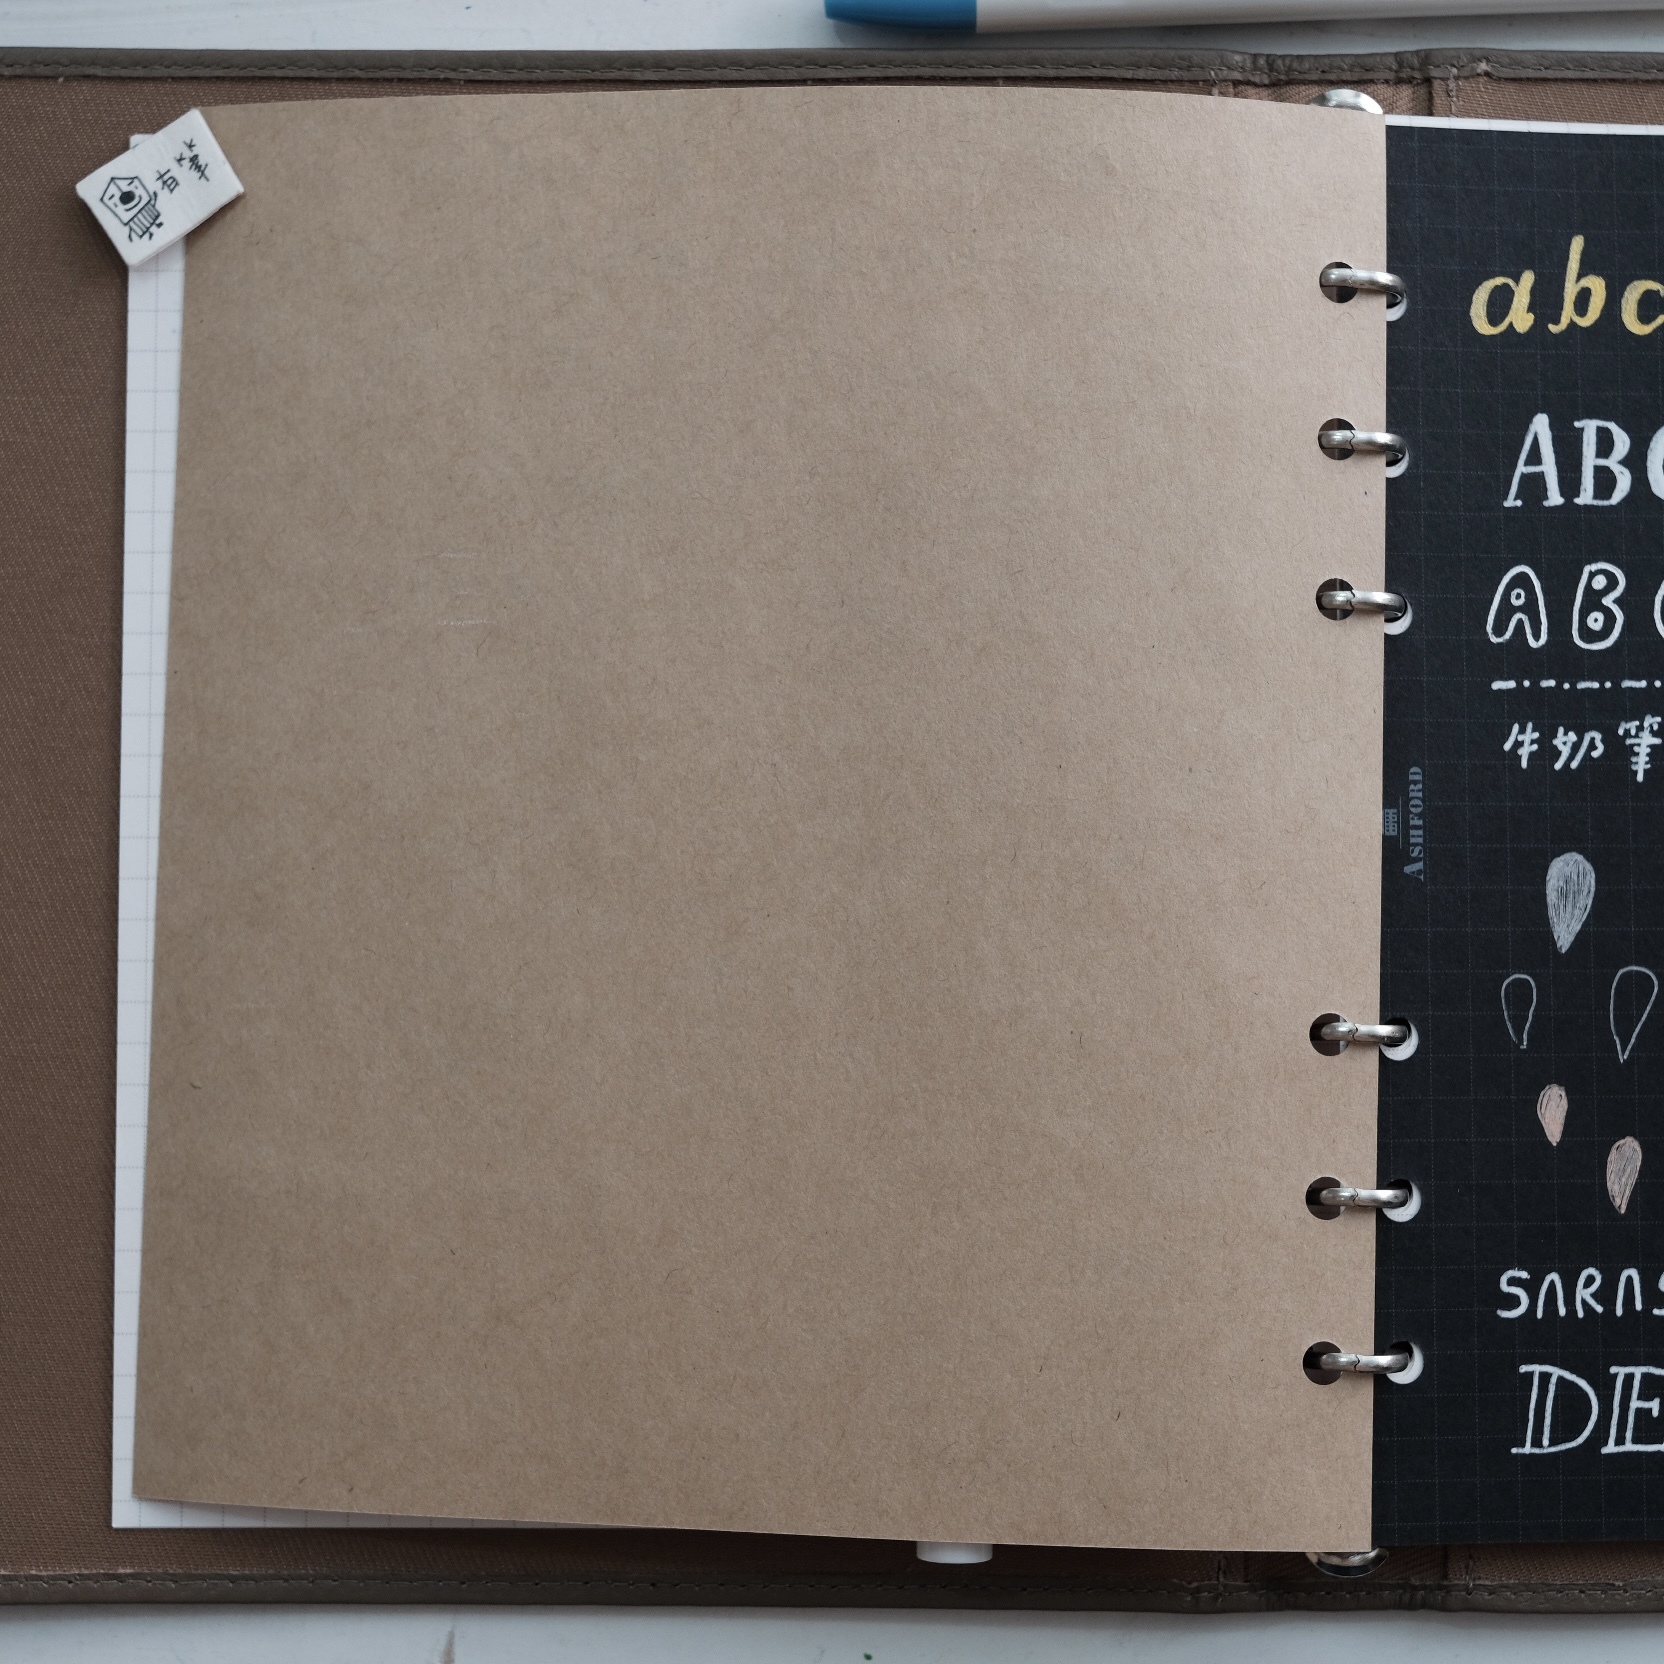 有筆
abc
ABC
ABC
牛奶筆
ASHFORD
SARAS
DE